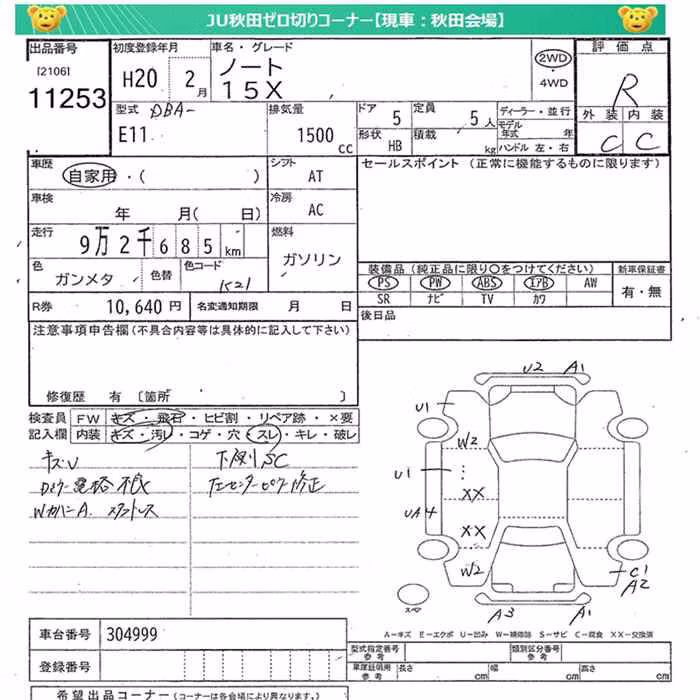 JU秋田ゼロ切りコーナー【現車：秋田会場】
出品番号
[2106]
11253
初度登録年月
H20 2月
車名・グレード
ノート
15X
2WD
4WD
評価点
R
外装 内装
C C
型式 DBA-
E11
排気量
1500cc
ドア 5
定員 5人
形状 HB
積載 kg
ディーラー・並行
モデル年式 年
ハンドル 左・右
車歴
自家用・( )
シフト
AT
セールスポイント (正常に機能するものに限ります)
車検
年 月(日)
冷房
AC
走行
9万2千685km
燃料
ガソリン
色
ガンメタ
色替
色コード
装備品 (純正品に限り○をつけてください)
新車保証書
PS PW ABS エアB AW
SR ナビ TV カワ
有・無
R券 10,640円
名変通知期限 月 日
後日品
注意事項申告欄(不具合内容等は具体的に記入して下さい)
修復歴 有 〔箇所 〕
検査員 FW キズ・飛石・ヒビ割・リペア跡・×要
記入欄 内装 キズ・汚レ・コゲ・穴・スレ・キレ・破レ
キズU
W2
U2 A1
U1
W2
U1
XX
UA4
XX
W2
C1
A2
A3 A1
スペア
A－キズ E－エクボ U－凹み W－補修跡 S－サビ C－腐食 XX－交換済
車台番号 304999
登録番号
型式指定番号 参考
類別区分番号 参考
長さ cm 幅 cm 高さ cm
希望出品コーナー(コーナーは各会場により異なります。)